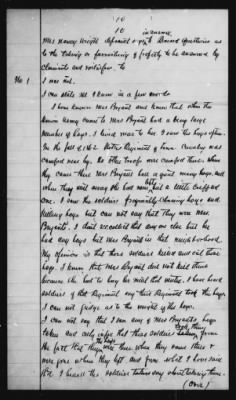 10
10 in answer
Mrs Nancy Wright deponent to Direct questions as
to the taking or furnishing of property to be answered by
Claimants and
No. 1 I was not.
I can state all I know in a few words
I have known Mrs Bryant and knew that when the
Union army came to Mrs Bryant had a being large
number of hogs. I lived near to her. I saw the hogs often.
In the fall of 1862 Regiment of Iowa Cavalry was
camped near by. No other troops were camped there. When
they came there Mrs Bryant had a quite many hogs and
when they went away she had none left but a little crippled
one. I saw the soldiers frequently chasing hogs and
killing hogs but can not say that they were Mrs.
Bryants. I don't recollect that any one else but he
had any hogs but Mrs Bryant in that neighborhood.
My opinion is that those soldiers killed and eat those
hogs. I know that Mrs Bryant does not kill them
because she had to buy her meat that winter. I have heard
soldiers of that Regiment say their Regiment took the hogs.
I can not judge as to the weight of the hogs.
I can not say that I saw any of Mrs Bryants hogs
taken and only judge that those soldiers used them from
the fact that the hogs were there when they came there &
were gone when they left and from what I have said
I heard the soldiers talking say about taking them.
(over)